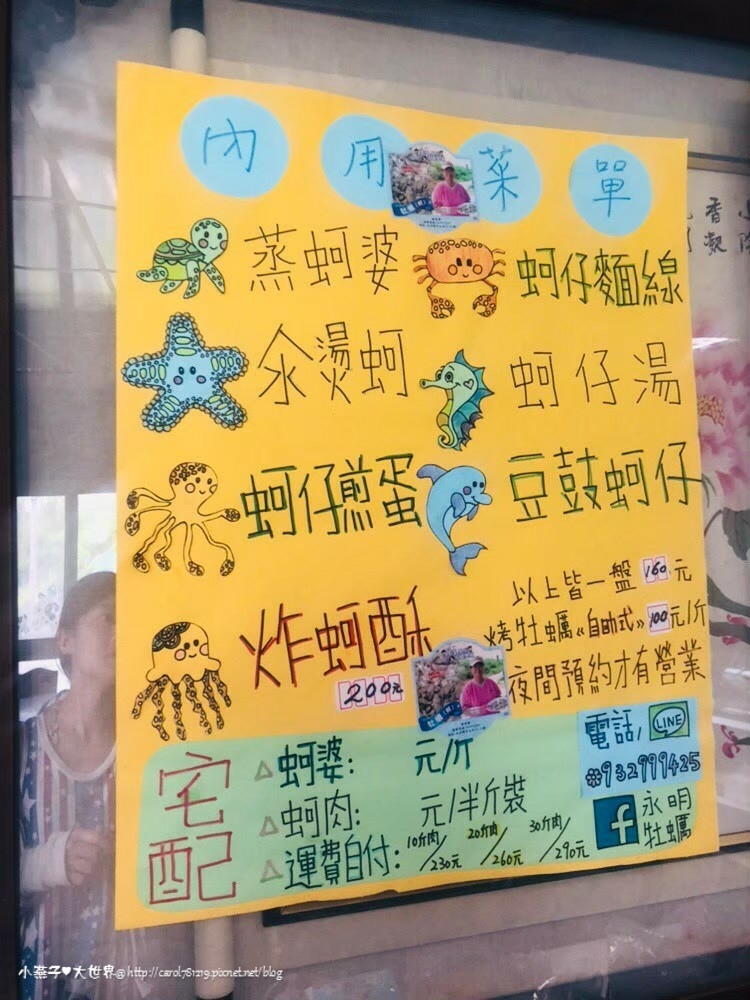 內用菜單
蒸蚵婆
蚵仔麵線
汆燙蚵
蚵仔湯
蚵仔煎蛋
豆鼓蚵仔
以上皆一盤160元
炸蚵酥
200元
烤牡蠣《自助式》100元/斤
夜間預約才有營業
宅配
△蚵婆: 元/斤
△蚵肉: 元/半斤裝
△運費自付: 10斤肉/230元 20斤肉/260元 30斤肉/290元
電話/LINE
#932999425
f 永明牡蠣
香
凝
小燕子♥大世界@http://carol781219.pixnet.net/blog